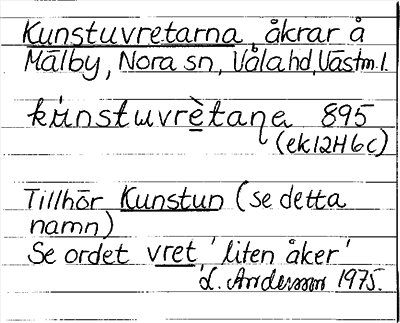 Kunstuvretarna åkrar å
Mälby, Nora sn, Våla hd, Västm.l.
kúnstuvrètana 895
(ek12H6c)
Tillhör Kunstun (se detta
namn)
Se ordet vret 'liten åker'
L. Andersson 1975.